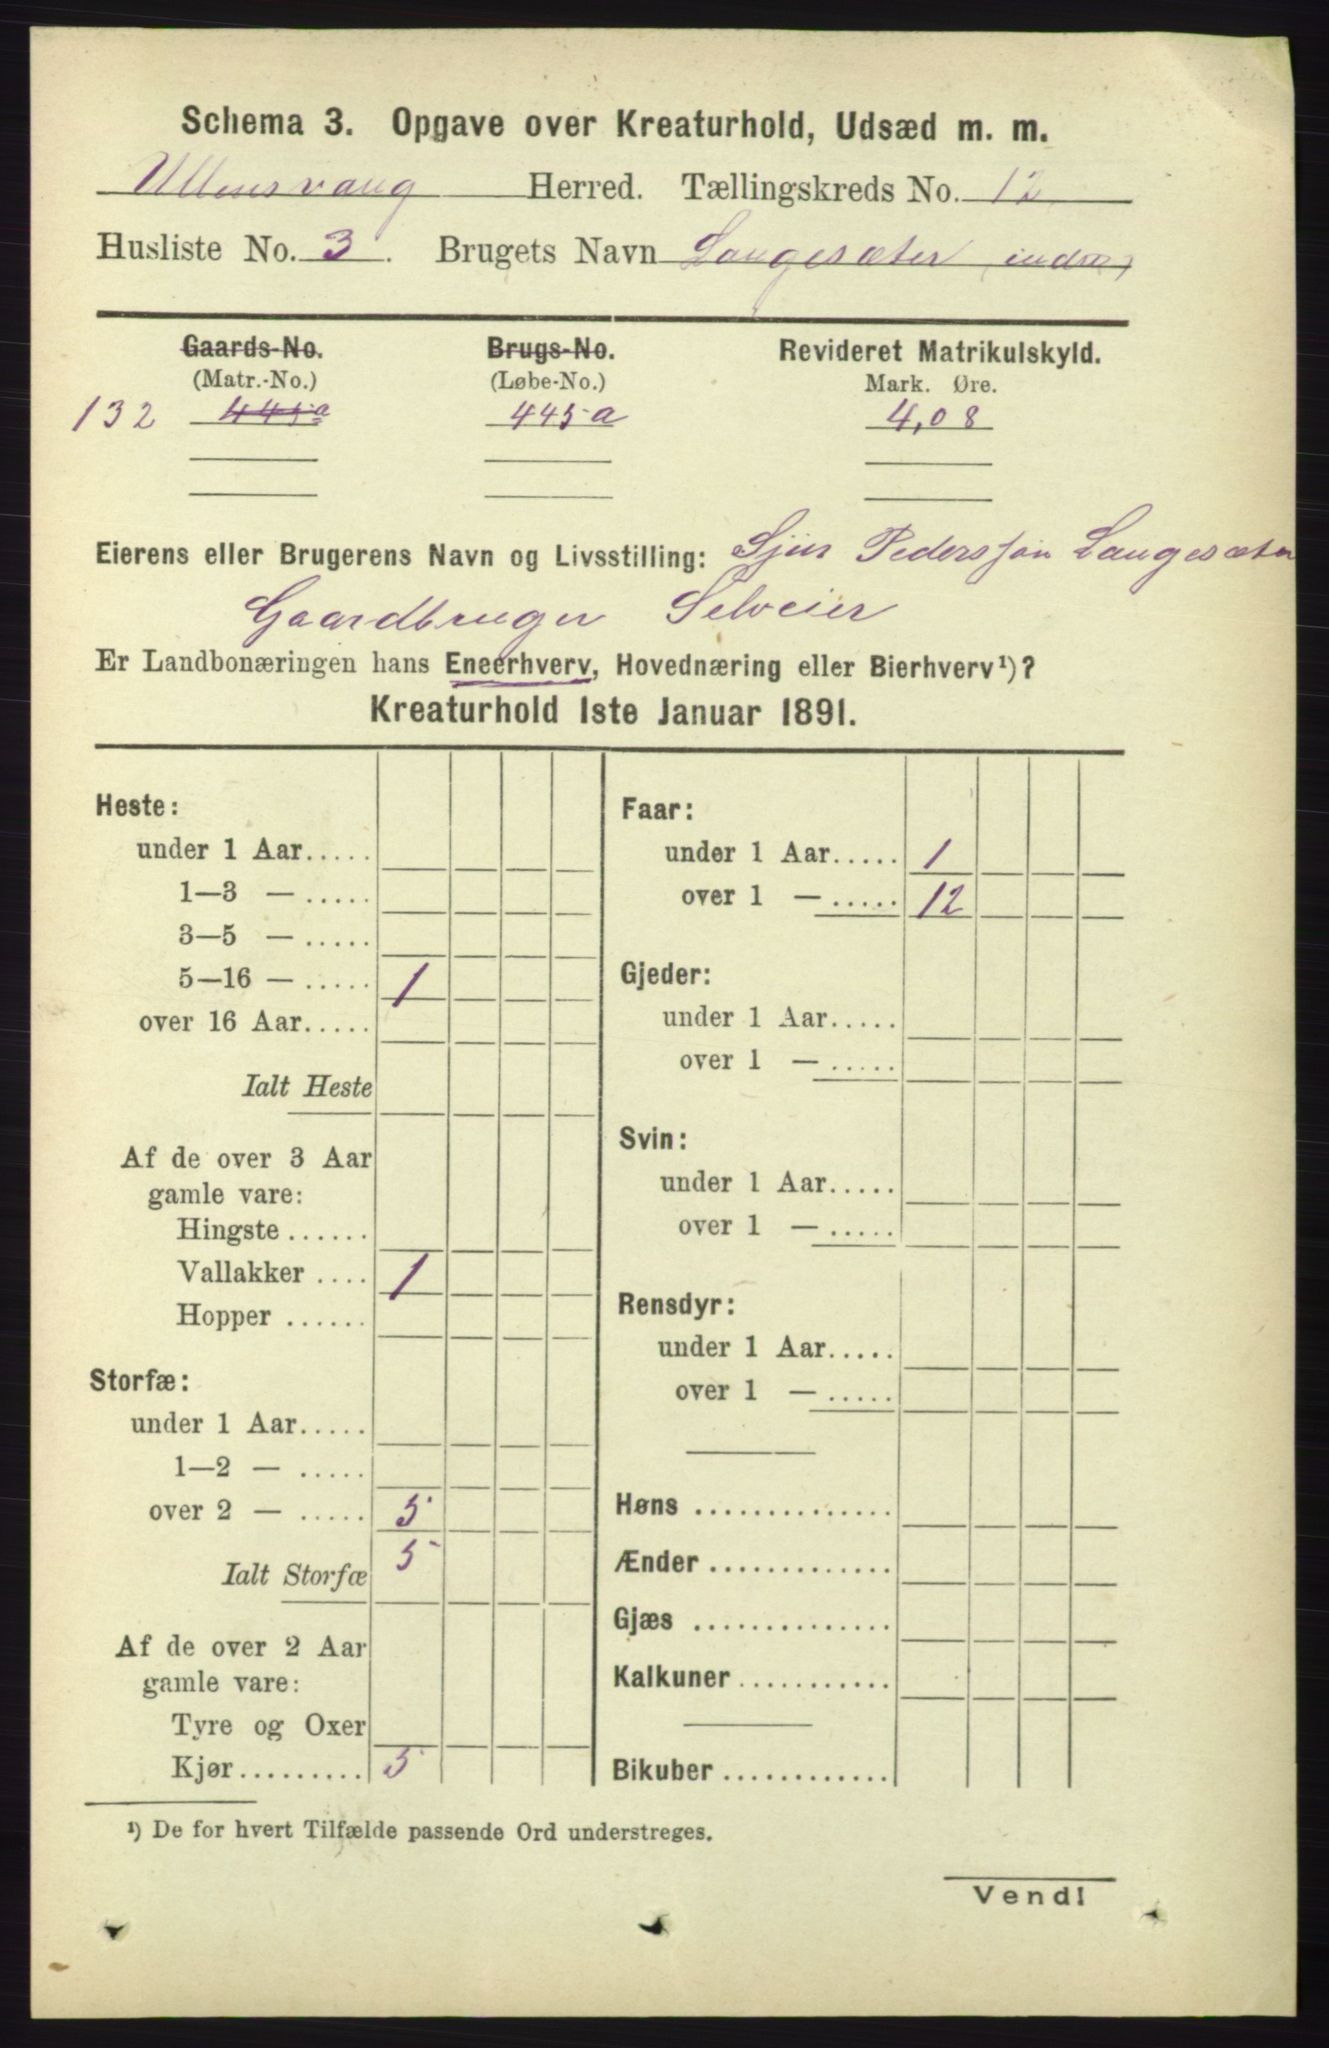 Schema 3. Opgave over Kreaturhold, Udsæd m. m.
Ullensvang Herred. Tællingskreds No. 12
Husliste No. 3. Brugets Navn Langesæter indre
Gaards-No. Brugs-No. Revideret Matrikulskyld.
(Matr.-No.) (Løbe-No.) Mark. Øre.
132 445a 445a 4,08
Eierens eller Brugerens Navn og Livsstilling: Sjur Pederssøn Langesæter
Gaardbruger Selveier
Er Landbonæringen hans Eneerhverv, Hovednæring eller Bierhverv¹)?
Kreaturhold 1ste Januar 1891.
Heste:
under 1 Aar.....
1—3 — .....
3—5 — .....
5—16 — ..... 1
over 16 Aar.....
Ialt Heste
Af de over 3 Aar
gamle vare:
Hingste ......
Vallakker .... 1
Hopper ......
Storfæ:
under 1 Aar.....
1—2 — .....
over 2 — ..... 5
Ialt Storfæ 5
Af de over 2 Aar
gamle vare:
Tyre og Oxer
Kjør......... 5
Faar:
under 1 Aar..... 1
over 1 — ..... 12
Gjeder:
under 1 Aar.....
over 1 — .....
Svin:
under 1 Aar.....
over 1 — .....
Rensdyr:
under 1 Aar.....
over 1 — .....
Høns ..............
Ænder .............
Gjæs ..............
Kalkuner ...........
Bikuber ............
¹) De for hvert Tilfælde passende Ord understreges.
Vend!